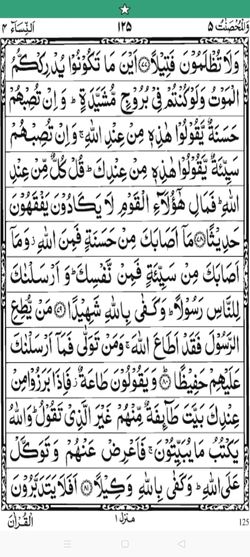 وَالْمُحْصَنٰتُ ٥ ١٢٥ اَلنِّسَآء ٤
وَلَا تُظْلَمُوْنَ فَتِيْلًا ﴿۷۷﴾ اَيْنَ مَا تَكُوْنُوْا يُدْرِكْكُّمُ
الْمَوْتُ وَلَوْ كُنْتُمْ فِيْ بُرُوْجٍ مُّشَيَّدَةٍ ؕ وَاِنْ تُصِبْهُمْ
حَسَنَةٌ يَّقُوْلُوْا هٰذِهٖ مِنْ عِنْدِ اللّٰهِ ۚ وَاِنْ تُصِبْهُمْ
سَيِّئَةٌ يَّقُوْلُوْا هٰذِهٖ مِنْ عِنْدِكَ ؕ قُلْ كُلٌّ مِّنْ عِنْدِ
اللّٰهِ ؕ فَمَالِ هٰٓؤُلَآءِ الْقَوْمِ لَا يَكَادُوْنَ يَفْقَهُوْنَ
حَدِيْثًا ﴿۷۸﴾ مَآ اَصَابَكَ مِنْ حَسَنَةٍ فَمِنَ اللّٰهِ ۫ وَمَآ
اَصَابَكَ مِنْ سَيِّئَةٍ فَمِنْ نَّفْسِكَ ؕ وَاَرْسَلْنٰكَ
لِلنَّاسِ رَسُوْلًا ؕ وَكَفٰى بِاللّٰهِ شَهِيْدًا ﴿۷۹﴾ مَنْ يُّطِعِ
الرَّسُوْلَ فَقَدْ اَطَاعَ اللّٰهَ ۚ وَمَنْ تَوَلّٰى فَمَآ اَرْسَلْنٰكَ
عَلَيْهِمْ حَفِيْظًا ﴿۸۰﴾ وَيَقُوْلُوْنَ طَاعَةٌ ۫ فَاِذَا بَرَزُوْا مِنْ
عِنْدِكَ بَيَّتَ طَآئِفَةٌ مِّنْهُمْ غَيْرَ الَّذِيْ تَقُوْلُ ؕ وَاللّٰهُ
يَكْتُبُ مَا يُبَيِّتُوْنَ ۚ فَاَعْرِضْ عَنْهُمْ وَتَوَكَّلْ
عَلَى اللّٰهِ ؕ وَكَفٰى بِاللّٰهِ وَكِيْلًا ﴿۸۱﴾ اَفَلَا يَتَدَبَّرُوْنَ
الْقُرْاٰنَ منزل ١ 125